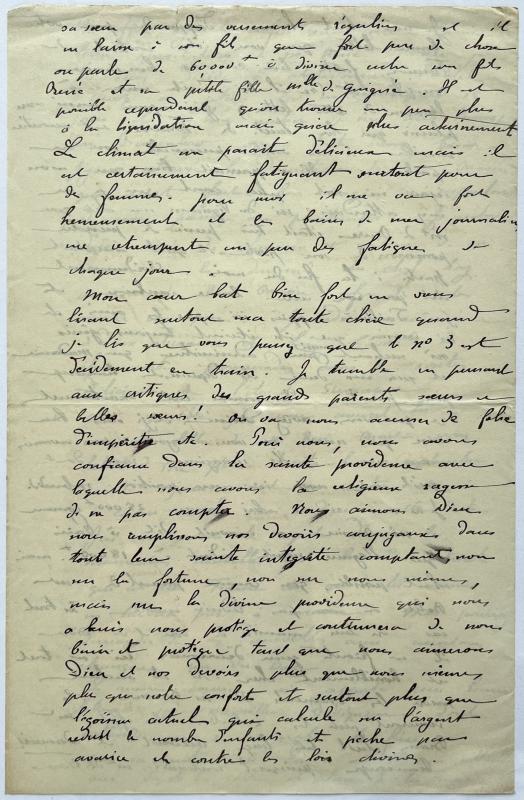 sa sœur par des versements réguliers et il
ne laisse à son fils que fort peu de chose
on parle de 60000 f à diviser entre son fils
et sa petite fille Melle de Guigné. Il est
possible cependant qu'on trouve un peu plus
à la liquidation mais guère plus
Le climat me parait délicieux mais il
est certainement fatiguant surtout pour
les femmes. pour moi il me va fort
heureusement et les bains de mer journaliers
me retrempent un peu des fatigues de
chaque jour.
Mon cœur bat bien fort en vous
lisant surtout ma toute chère quand
je lis que vous pensez que le no 3 est
décidement en train. Je tremble en pensant
aux critiques des grands parents sœurs et
belles sœurs! on va nous accuser de folie
d'impéritie etc. Pour nous, nous avons
confiance dans la sainte providence avec
laquelle nous avons la religieuse sagesse
de ne pas compter. Nous aimons Dieu
nous remplissons nos devoirs conjugaux dans
toute leur sainte intégrité comptant non
sur la fortune, non sur nous mêmes,
mais sur la divine providence qui nous
a bénis nous protège et continuera de nous
bénir et protéger tant que nous aimerons
Dieu et nos devoirs plus que nous mêmes
plus que notre confort et surtout plus que
l'égoïsme actuel qui calcule sur l'argent
réduit le nombre d'enfants et pèche par
avarice et contre les lois divines.